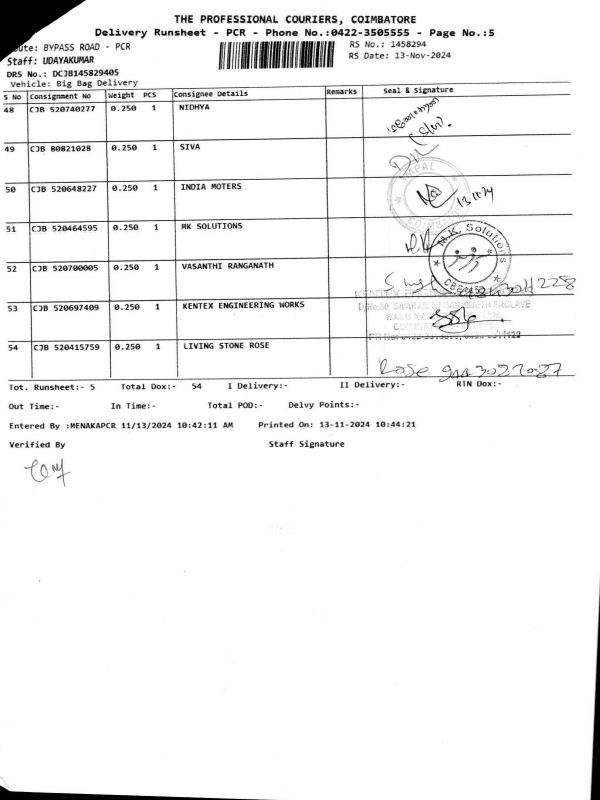 THE PROFESSIONAL COURIERS, COIMBATORE
Delivery Runsheet - PCR - Phone No.:0422-3505555 - Page No.:5
oute: BYPASS ROAD - PCR
RS No.: 1458294
Staff: UDAYAKUMAR
RS Date: 13-Nov-2024
DRS No.: DCJB145829405
Vehicle: Big Bag Delivery
S No Consignment No Weight PCS Consignee Details Remarks Seal & Signature
48 CJB 520740277 0.250 1 NIDHYA
49 CJB 80821028 0.250 1 SIVA
50 CJB 520648227 0.250 1 INDIA MOTERS
13.11.24
51 CJB 520464595 0.250 1 MK SOLUTIONS
M.K. Solutions
52 CJB 520700005 0.250 1 VASANTHI RANGANATH
53 CJB 520697409 0.250 1 KENTEX ENGINEERING WORKS
KENTEX
54 CJB 520415759 0.250 1 LIVING STONE ROSE
Rose 9443087087
Tot. Runsheet:- 5 Total Dox:- 54 I Delivery:- II Delivery:- RTN Dox:-
Out Time:- In Time:- Total POD:- Delvy Points:-
Entered By :MENAKAPCR 11/13/2024 10:42:11 AM Printed On: 13-11-2024 10:44:21
Verified By Staff Signature